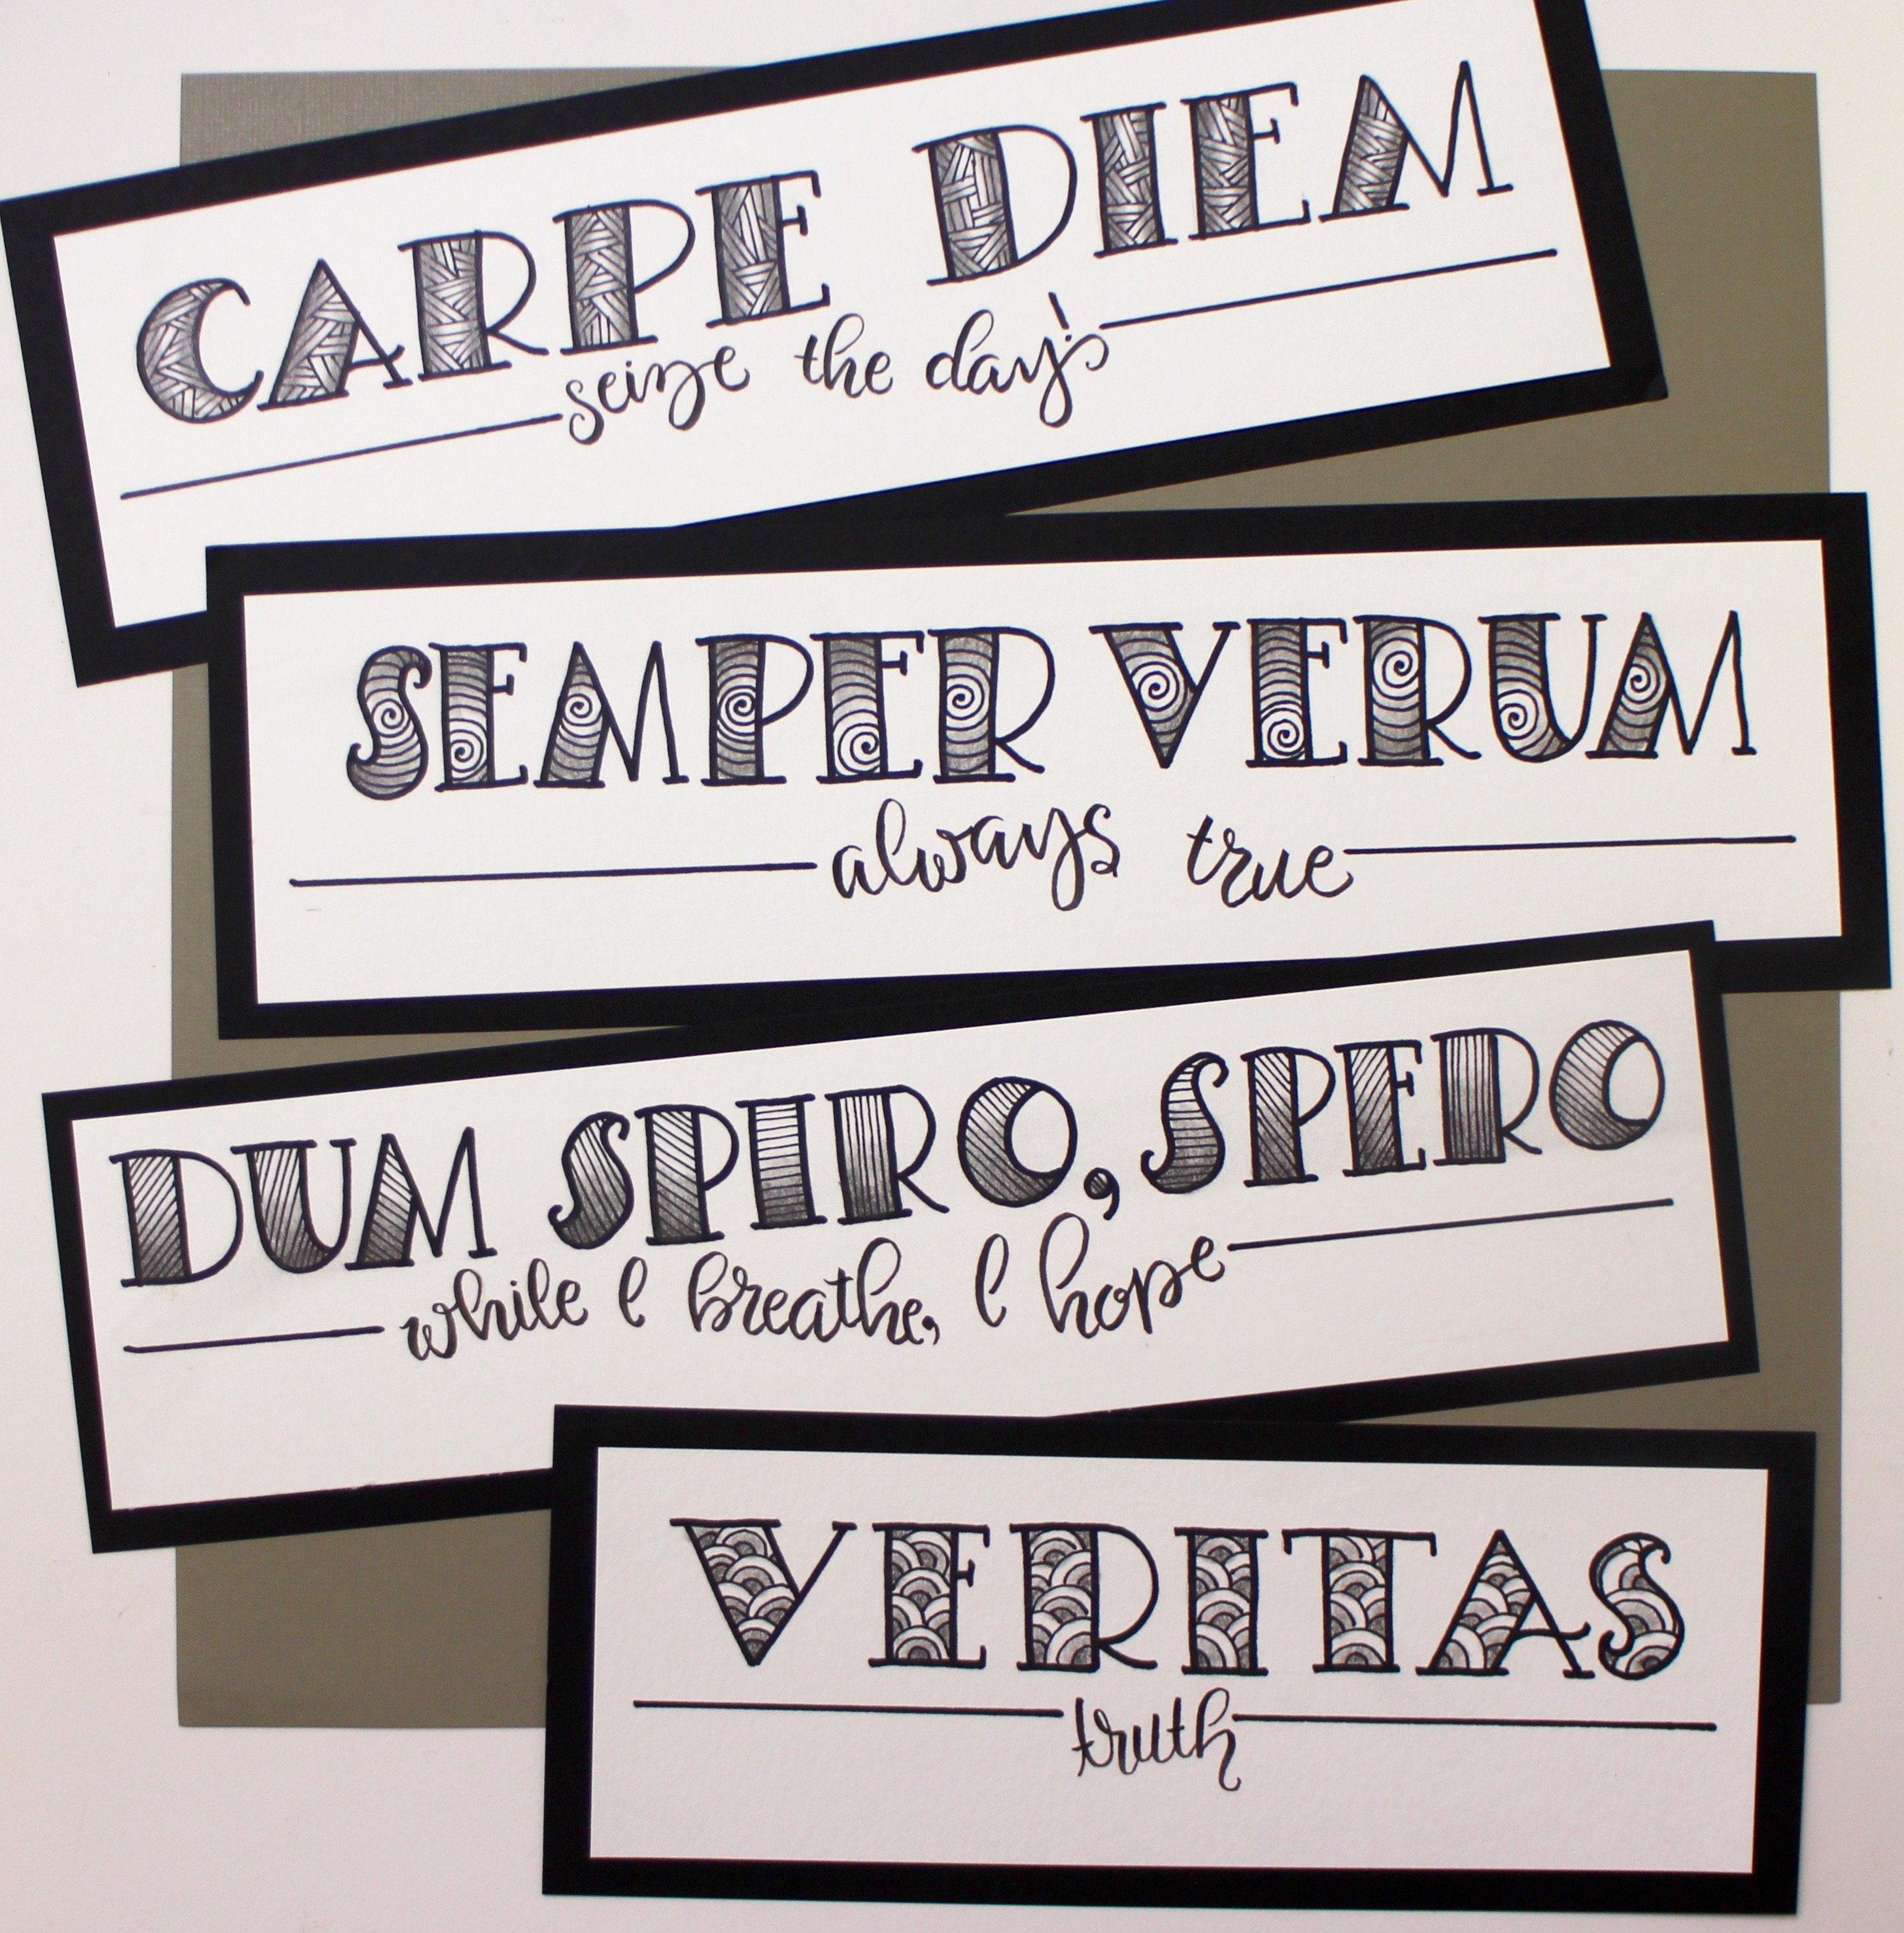 CARPE DIEM
seize the day!
SEMPER VERUM
always true
DUM SPIRO, SPERO
while I breathe, I hope
VERITAS
truth